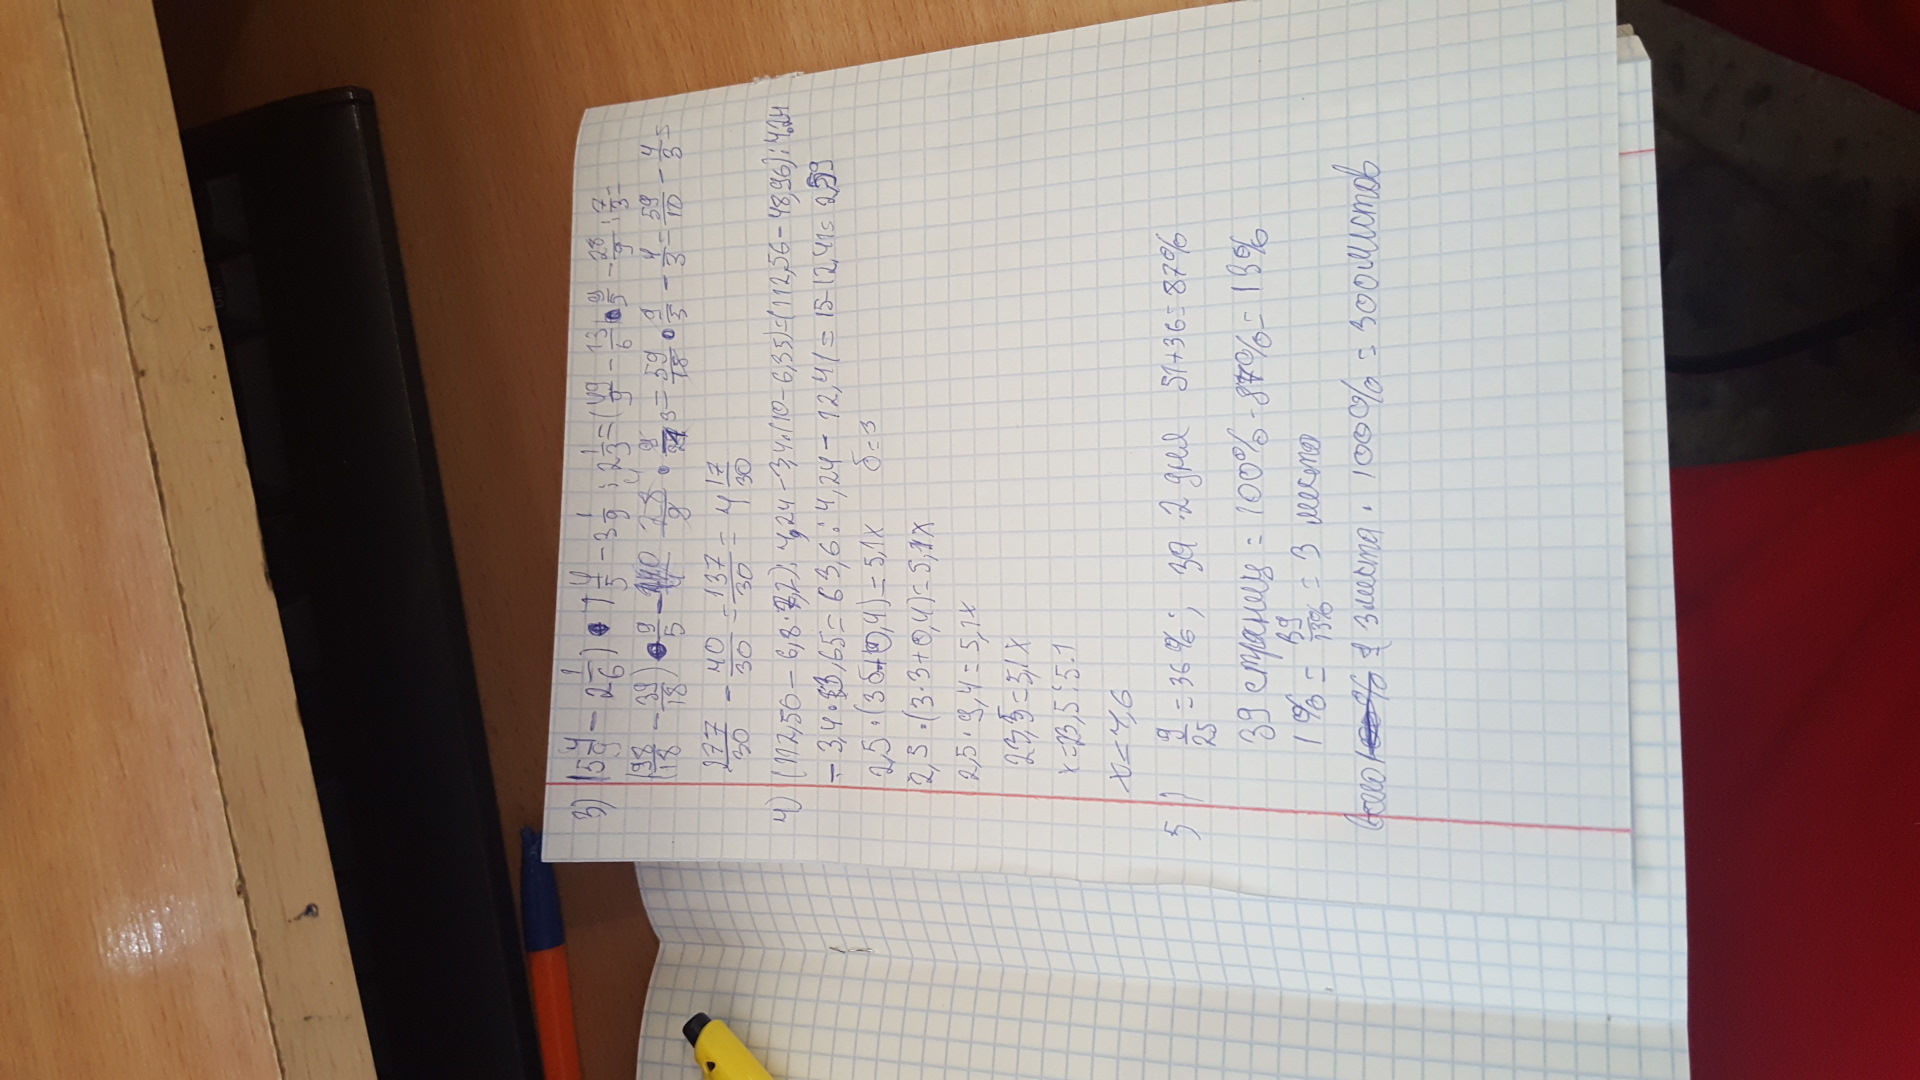 3) (5 4/9 - 2 1/6) • 1 4/5 - 3 1/9 : 2 1/3 = (49/9 - 13/6) • 9/5 - 28/9 : 7/3 =
(98/18 - 39/18) • 9/5 - 28/9 • 3 = 59/18 • 9/5 - 4/3 = 59/10 - 4/3 =
177/30 - 40/30 = 137/30 = 4 17/30
4) (112,56 - 6,8 · 7,2) : 4,24 - 3,4 · (10 - 6,35) = (112,56 - 48,96) : 4,24
- 3,4 · 3,65 = 63,6 : 4,24 - 12,41 = 15 - 12,41 = 2,59
2,5 · (3б + 0,4) = 5,1x б = 3
2,5 · (3·3 + 0,4) = 5,1x
2,5 · 9,4 = 5,1x
23,5 = 5,1x
x = 23,5 : 5.1
x = 4,6
5) 9/25 = 36%; 39 · 2 дня 51 + 36 = 87%
39 страниц = 100% - 87% = 13%
1% = 39/13% = 3 листа
3 листа · 100% = 300 листов